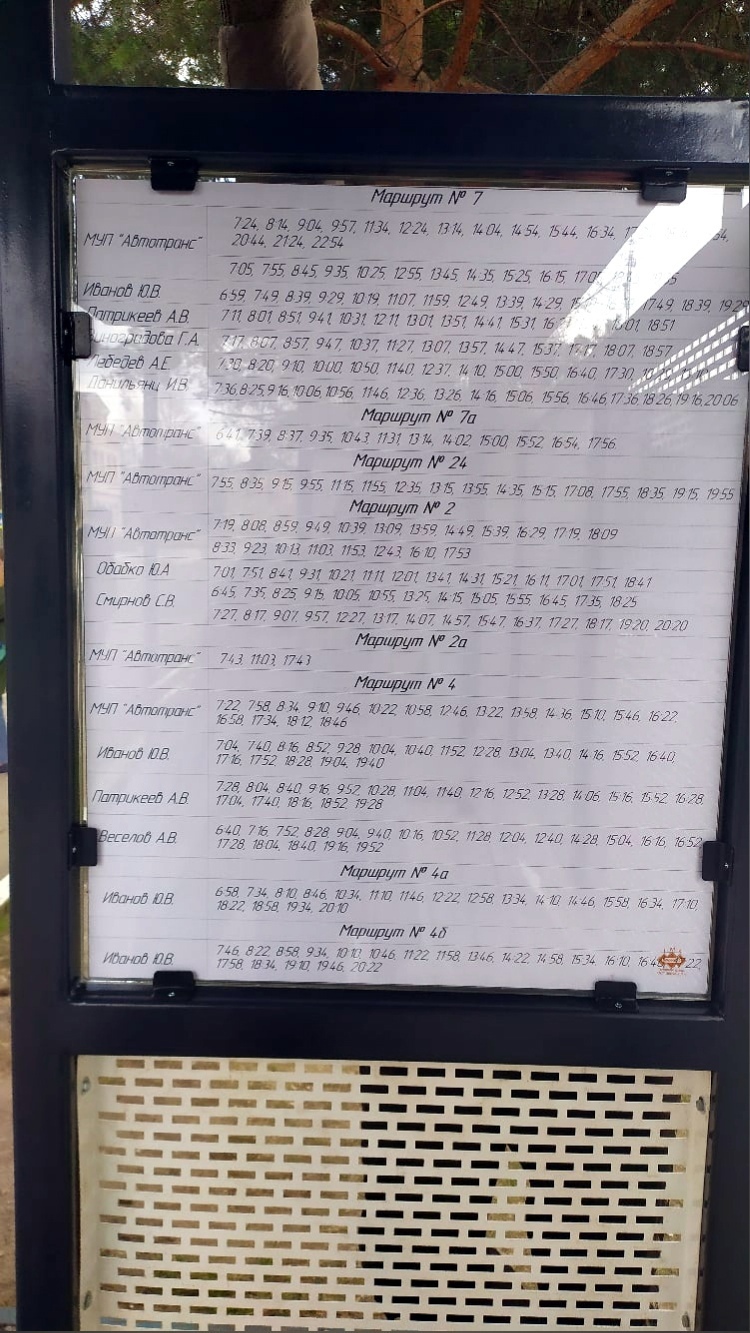 Маршрут № 7
МУП "Автотранс" 7:24, 8:14, 9:04, 9:57, 11:34, 12:24, 13:14, 14:04, 14:54, 15:44, 16:34,
20:44, 21:24, 22:54
7:05, 7:55, 8:45, 9:35, 10:25, 12:55, 13:45, 14:35, 15:25, 16:15,
Иванов Ю.В. 6:59, 7:49, 8:39, 9:29, 10:19, 11:07, 11:59, 12:49, 13:39, 14:29, 17:49, 18:39, 19:29
Патрикеев А.В. 7:11, 8:01, 8:51, 9:41, 10:31, 12:11, 13:01, 13:51, 14:41, 15:31, 18:01, 18:51
Виноградова Г.А. 7:17, 8:07, 8:57, 9:47, 10:37, 11:27, 13:07, 13:57, 14:47, 15:37, 17:17, 18:07, 18:57
Лебедев А.Е. 7:30, 8:20, 9:10, 10:00, 10:50, 11:40, 12:37, 14:10, 15:00, 15:50, 16:40, 17:30,
Данильянц И.В. 7:36, 8:25, 9:16, 10:06, 10:56, 11:46, 12:36, 13:26, 14:16, 15:06, 15:56, 16:46, 17:36, 18:26, 19:16, 20:06
Маршрут № 7а
МУП "Автотранс" 6:41, 7:39, 8:37, 9:35, 10:43, 11:31, 13:14, 14:02, 15:00, 15:52, 16:54, 17:56
Маршрут № 24
МУП "Автотранс" 7:55, 8:35, 9:15, 9:55, 11:15, 11:55, 12:35, 13:15, 13:55, 14:35, 15:15, 17:08, 17:55, 18:35, 19:15, 19:55
Маршрут № 2
МУП "Автотранс" 7:19, 8:08, 8:59, 9:49, 10:39, 13:09, 13:59, 14:49, 15:39, 16:29, 17:19, 18:09
8:33, 9:23, 10:13, 11:03, 11:53, 12:43, 16:10, 17:53
Обабко Ю.А 7:01, 7:51, 8:41, 9:31, 10:21, 11:11, 12:01, 13:41, 14:31, 15:21, 16:11, 17:01, 17:51, 18:41
Смирнов С.В. 6:45, 7:35, 8:25, 9:15, 10:05, 10:55, 13:25, 14:15, 15:05, 15:55, 16:45, 17:35, 18:25
7:27, 8:17, 9:07, 9:57, 12:27, 13:17, 14:07, 14:57, 15:47, 16:37, 17:27, 18:17, 19:20, 20:20
Маршрут № 2а
МУП "Автотранс" 7:43, 11:03, 17:43
Маршрут № 4
МУП "Автотранс" 7:22, 7:58, 8:34, 9:10, 9:46, 10:22, 10:58, 12:46, 13:22, 13:58, 14:36, 15:10, 15:46, 16:22,
16:58, 17:34, 18:12, 18:46
Иванов Ю.В. 7:04, 7:40, 8:16, 8:52, 9:28, 10:04, 10:40, 11:52, 12:28, 13:04, 13:40, 14:16, 15:52, 16:40,
17:16, 17:52, 18:28, 19:04, 19:40
Патрикеев А.В. 7:28, 8:04, 8:40, 9:16, 9:52, 10:28, 11:04, 11:40, 12:16, 12:52, 13:28, 14:06, 15:16, 15:52, 16:28,
17:04, 17:40, 18:16, 18:52, 19:28
Веселов А.В. 6:40, 7:16, 7:52, 8:28, 9:04, 9:40, 10:16, 10:52, 11:28, 12:04, 12:40, 14:28, 15:04, 16:16, 16:52
17:28, 18:04, 18:40, 19:16, 19:52
Маршрут № 4а
Иванов Ю.В. 6:58, 7:34, 8:10, 8:46, 10:34, 11:10, 11:46, 12:22, 12:58, 13:34, 14:10, 14:46, 15:58, 16:34, 17:10,
18:22, 18:58, 19:34, 20:10
Маршрут № 4б
Иванов Ю.В. 7:46, 8:22, 8:58, 9:34, 10:10, 10:46, 11:22, 11:58, 13:46, 14:22, 14:58, 15:34, 16:10,
17:58, 18:34, 19:10, 19:46, 20:22